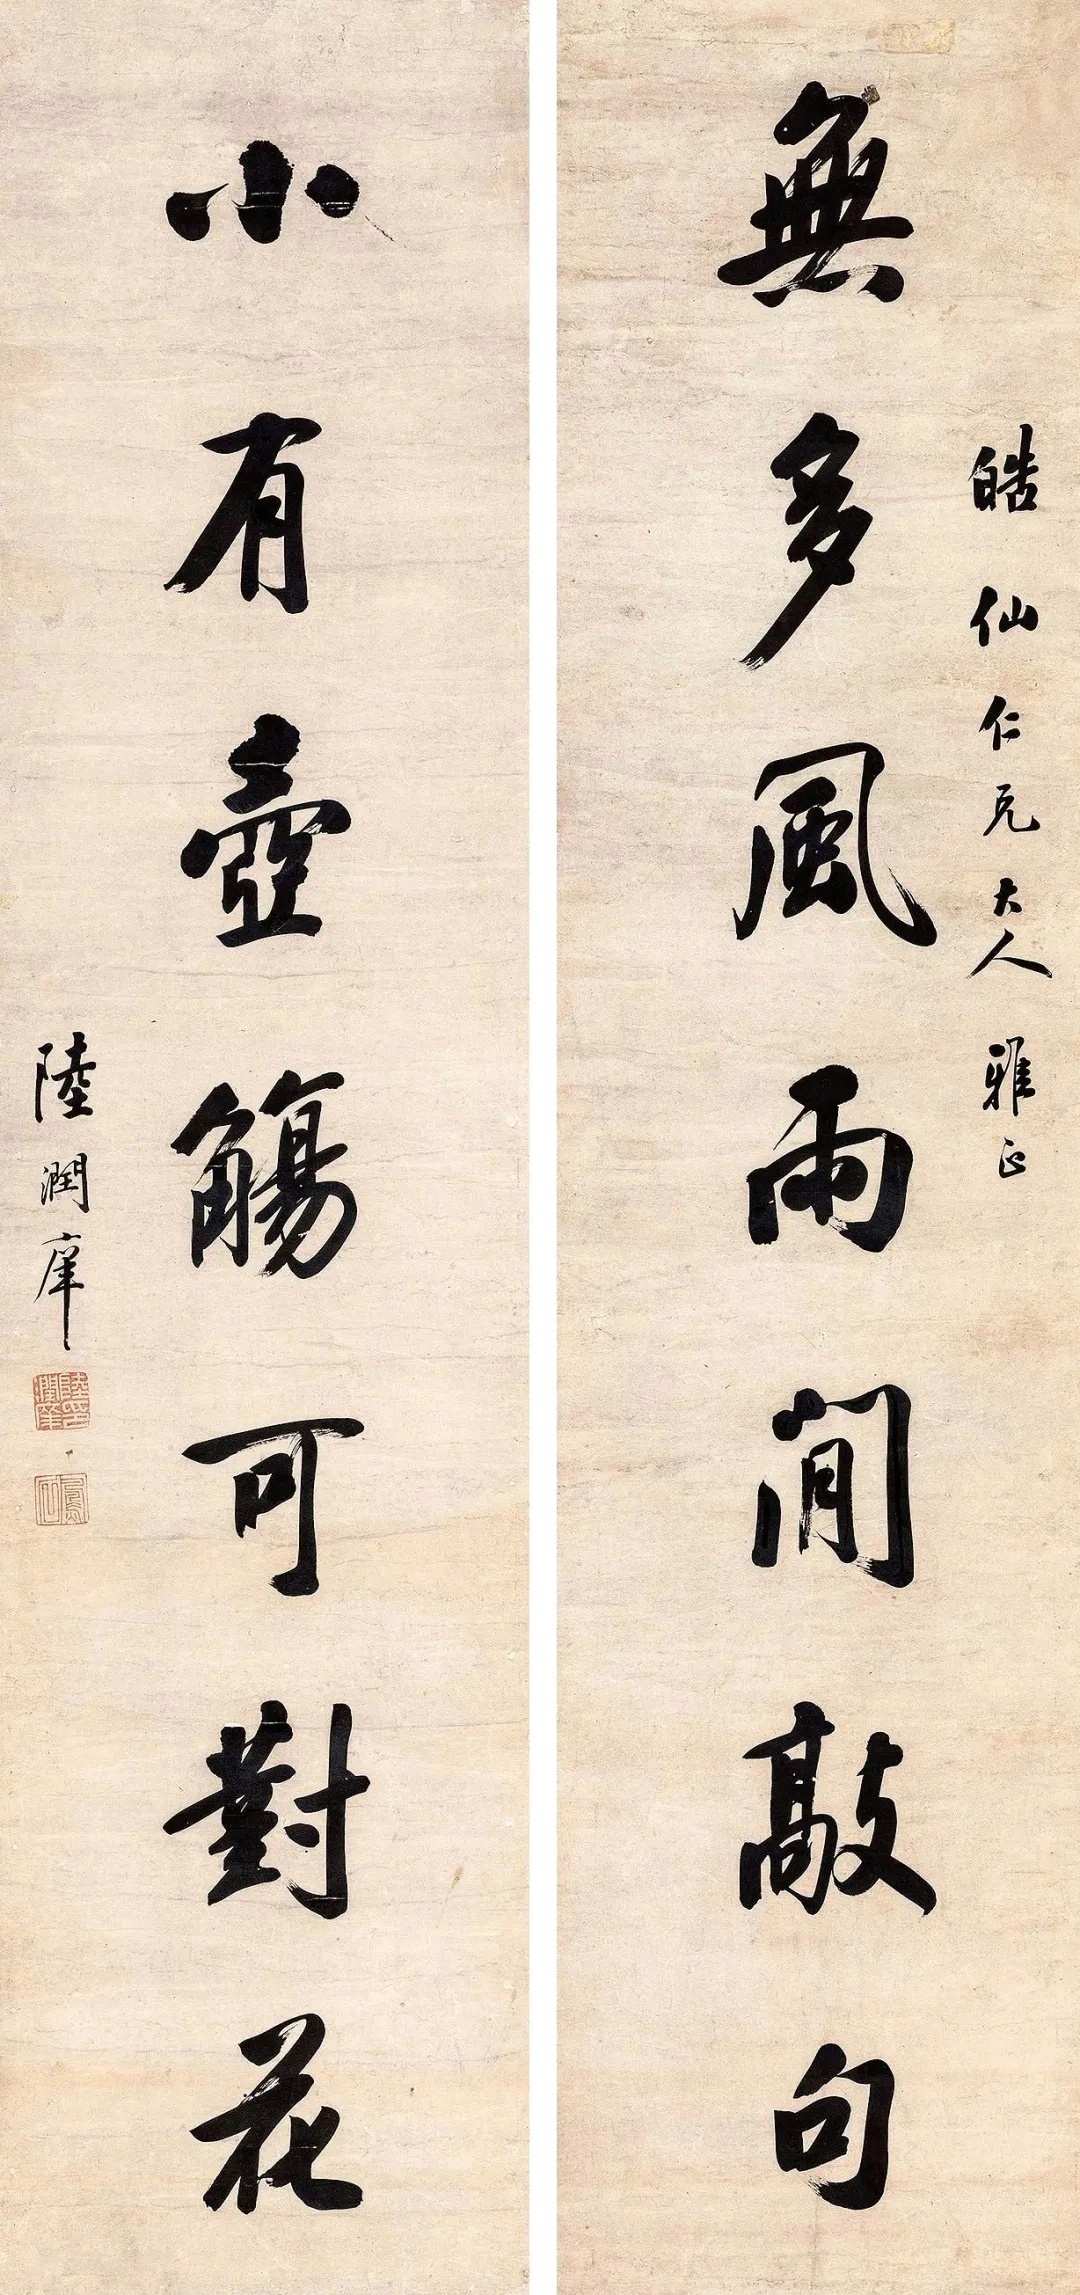 皓仙仁兄大人雅正
無多風雨閒敲句
小有壺觴可對花
陸潤庠
陸潤庠印
鳳石